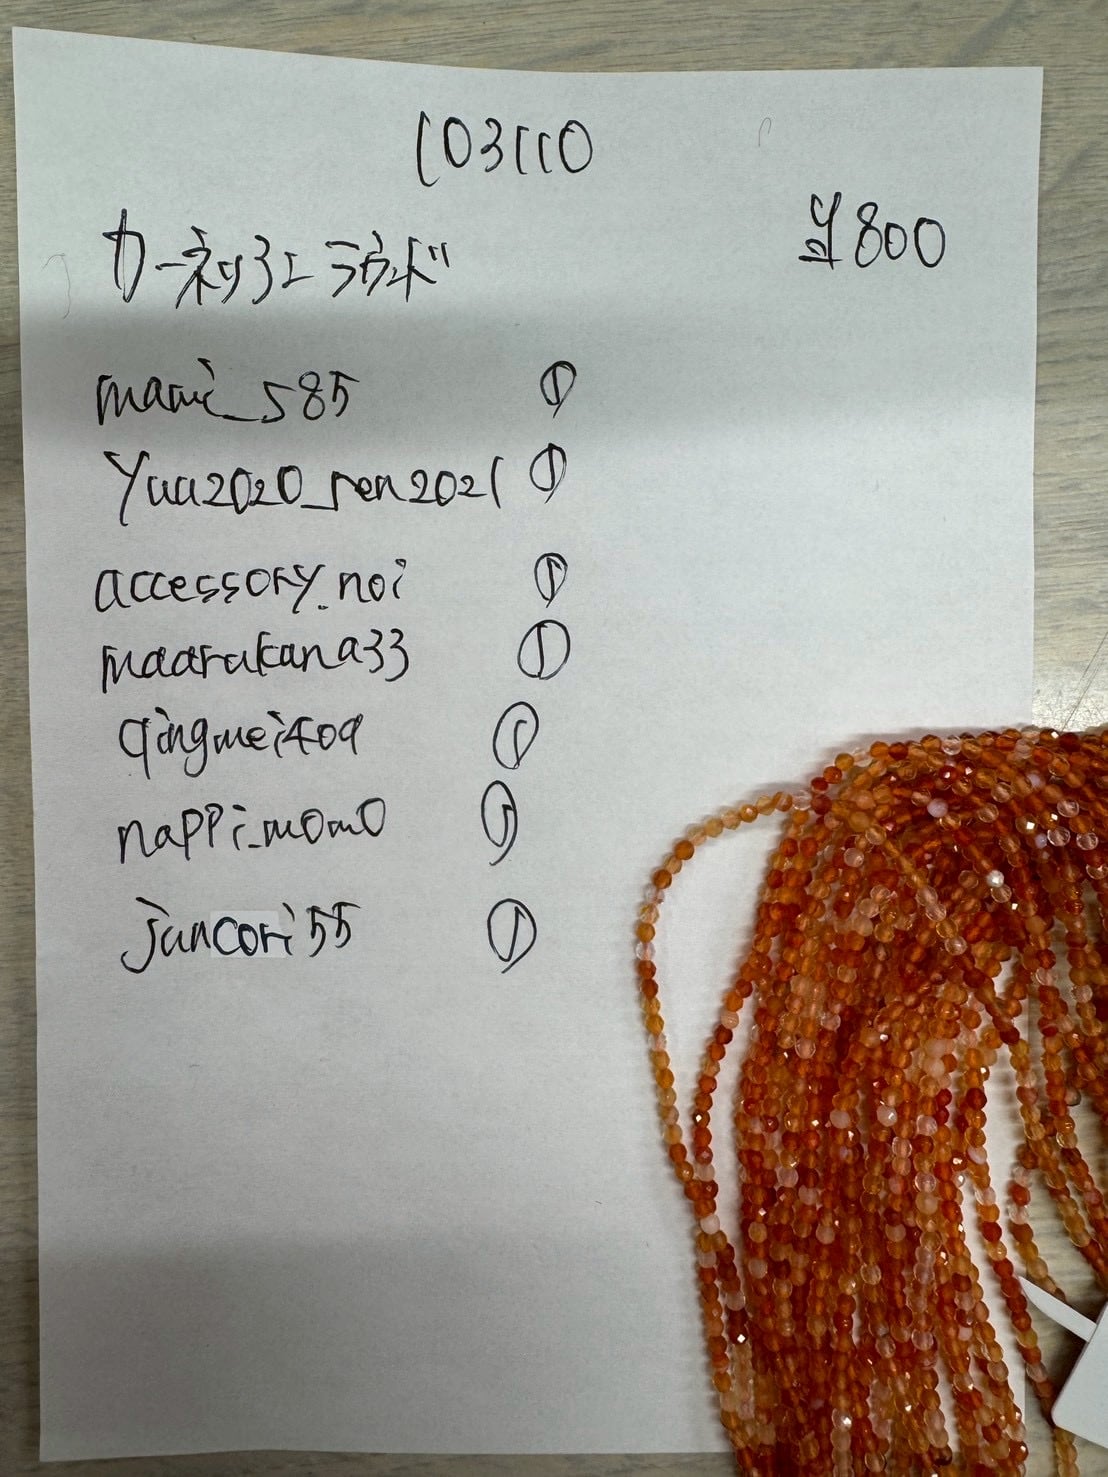 103110
カーネリアン ラウンド
¥800
mami_s85 ①
yuu2020_ren2021 ①
accessory.noi ①
maarukana33 ①
qingmei409 ①
nappi_momo ①
juncori55 ①